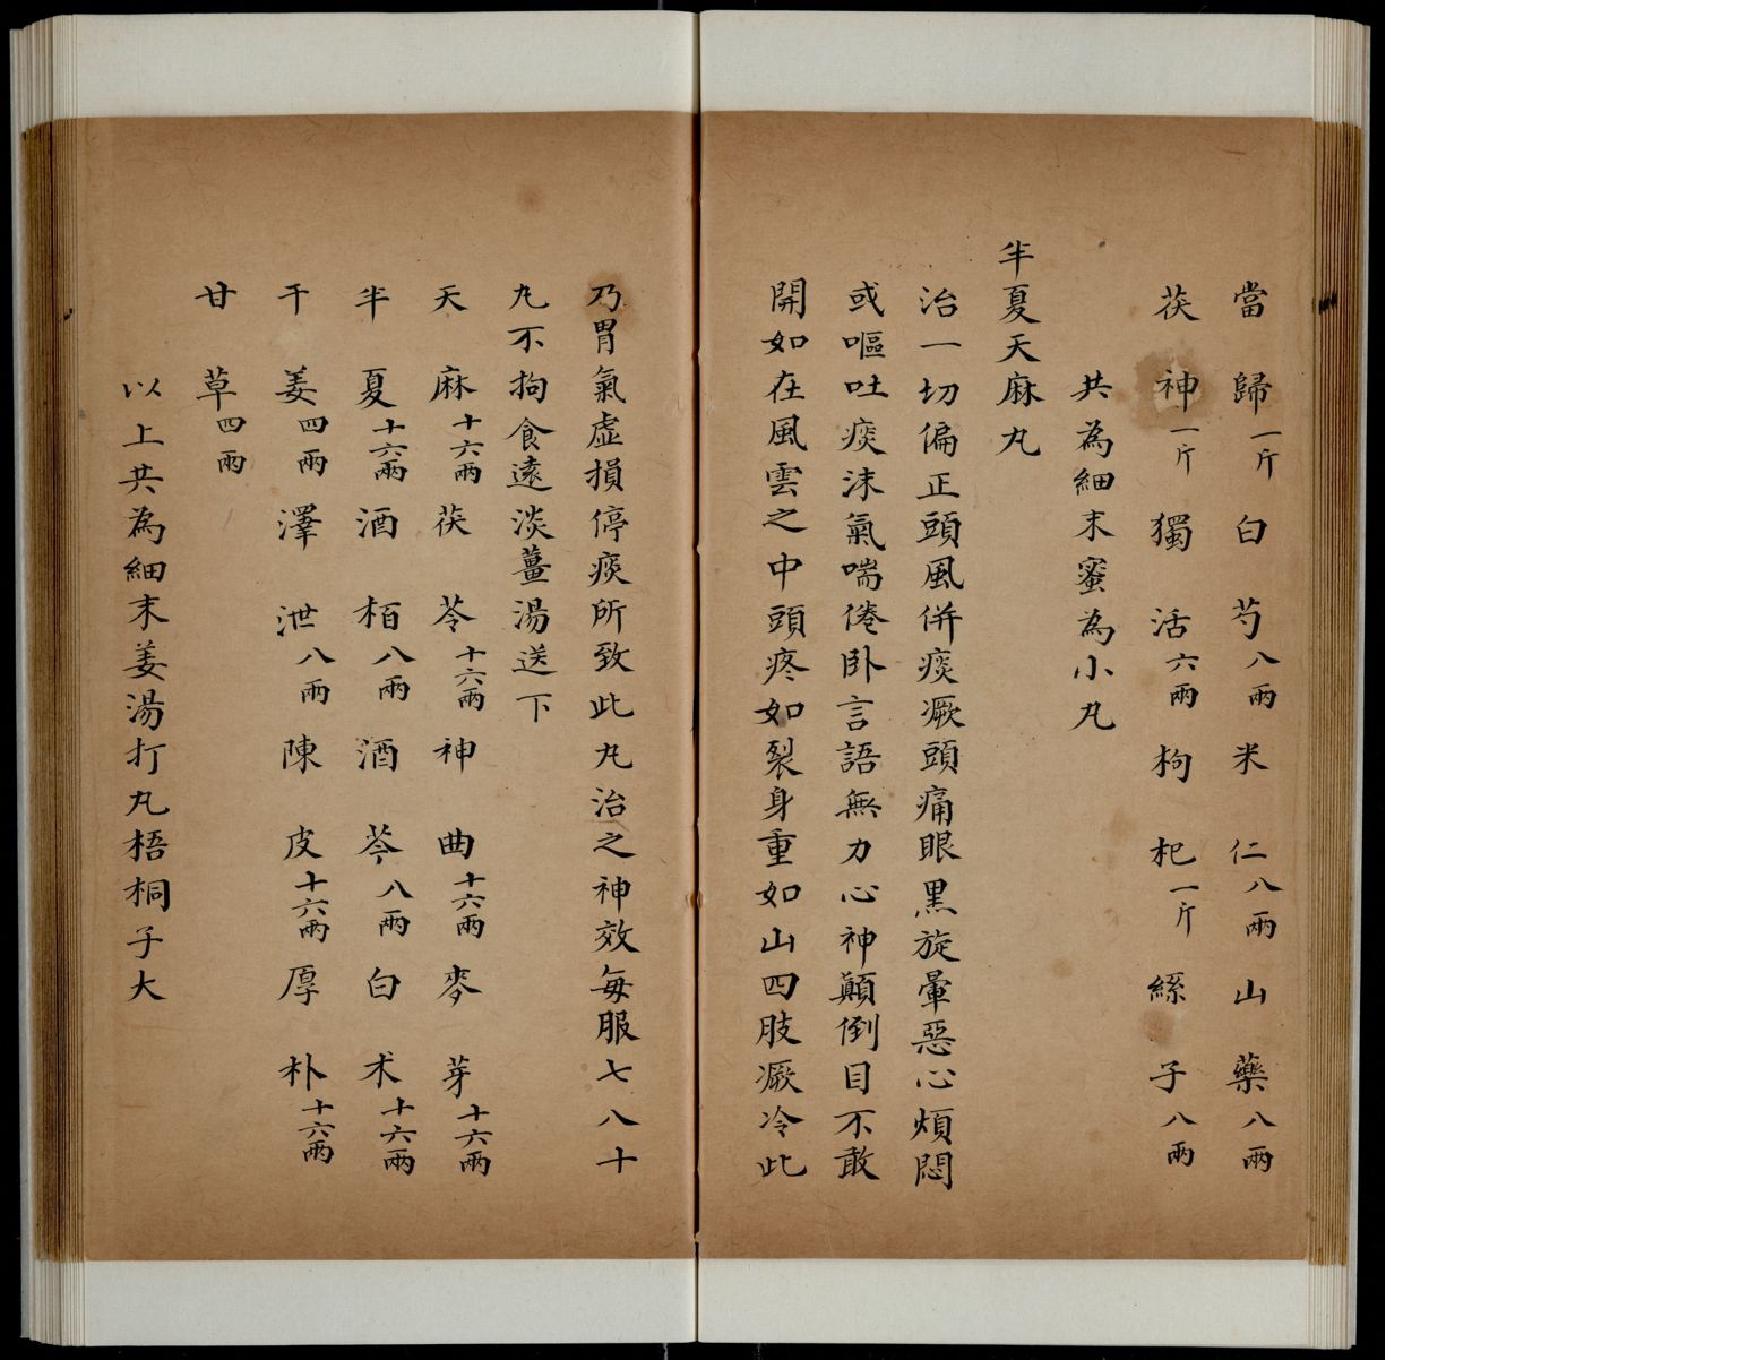 當歸一斤白芍八兩米仁八兩山藥八兩
茯神一斤獨活六兩枸杞一斤絲子八兩
共為細末蜜為小丸
半夏天麻丸
治一切偏正頭風併痰厥頭痛眼黑旋暈惡心煩悶
或嘔吐痰沫氣喘倦卧言語無力心神顛倒目不敢
開如在風雲之中頭疼如裂身重如山四肢厥冷此
乃胃氣虛損停痰所致此丸治之神效每服七八十
丸不拘食遠淡薑湯送下
天麻十六兩茯苓十六兩神曲十六兩麥芽十六兩
半夏十六兩酒栢八兩酒芩八兩白术十六兩
干姜四兩澤泄八兩陳皮十六兩厚朴十六兩
甘草四兩
以上共為細末姜湯打丸梧桐子大